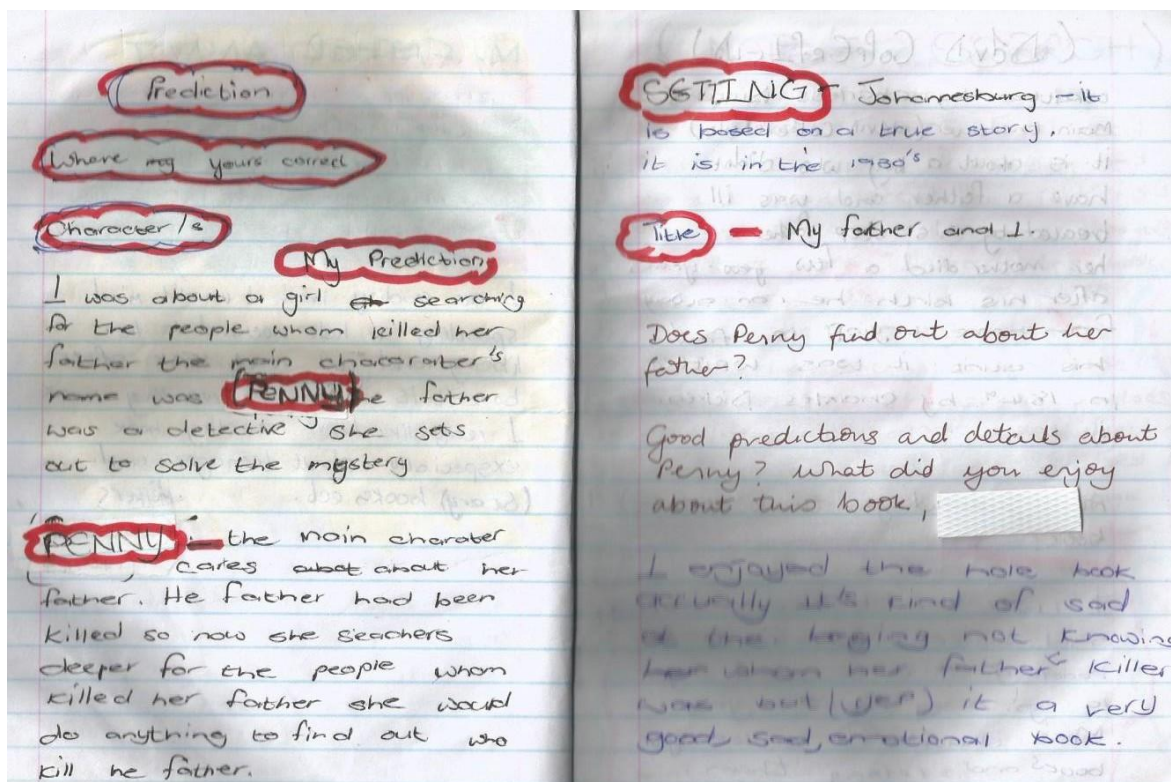 Prediction
Where my yours correct
Character/s
My Prediction
I was about a girl searching
for the people whom killed her
father the main characrater's
name was PENNY he father
was a detective she sets
out to solve the mystery
PENNY - the main charater
cares about her
father. He father had been
killed so now she seachers
deeper for the people whom
killed her father she would
do anything to find out who
kill he father.
SETTING - Johannesburg - it
is based on a true story.
it is in the 1980's
Title - My father and I.
Does Penny find out about her
father?
Good predictions and details about
Penny? What did you enjoy
about this book,
I enjoyed the hole book
actually it's kind of sad
at the not knowing
her whom her father killer
was but (yer) it a very
good, sad, emotional book.